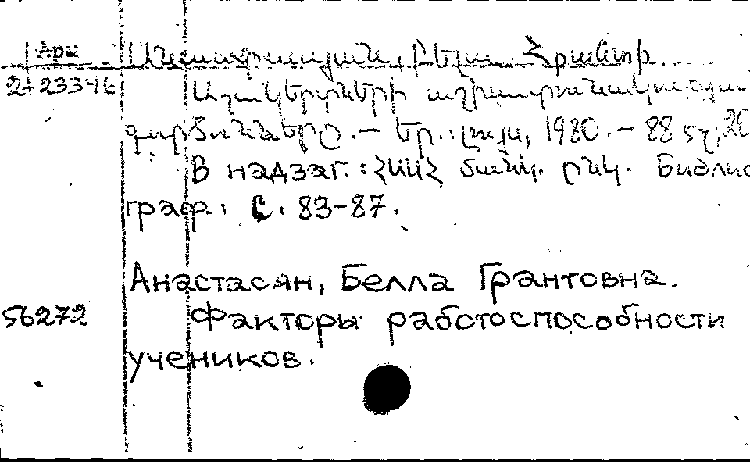 Арм
2+23346
Անաստասյան, Բելլա Հրանտի.
Աշակերտների աշխատունակության
գործոնները. – Եր.: Լույս, 1980. – 88 էջ, 20
В надзаг.: ՀՍՍՀ մանկ. ընկ. Библио
граф.: С. 83-87.
Анастасян, Белла Грантовна.
56272 Факторы работоспособности
учеников.